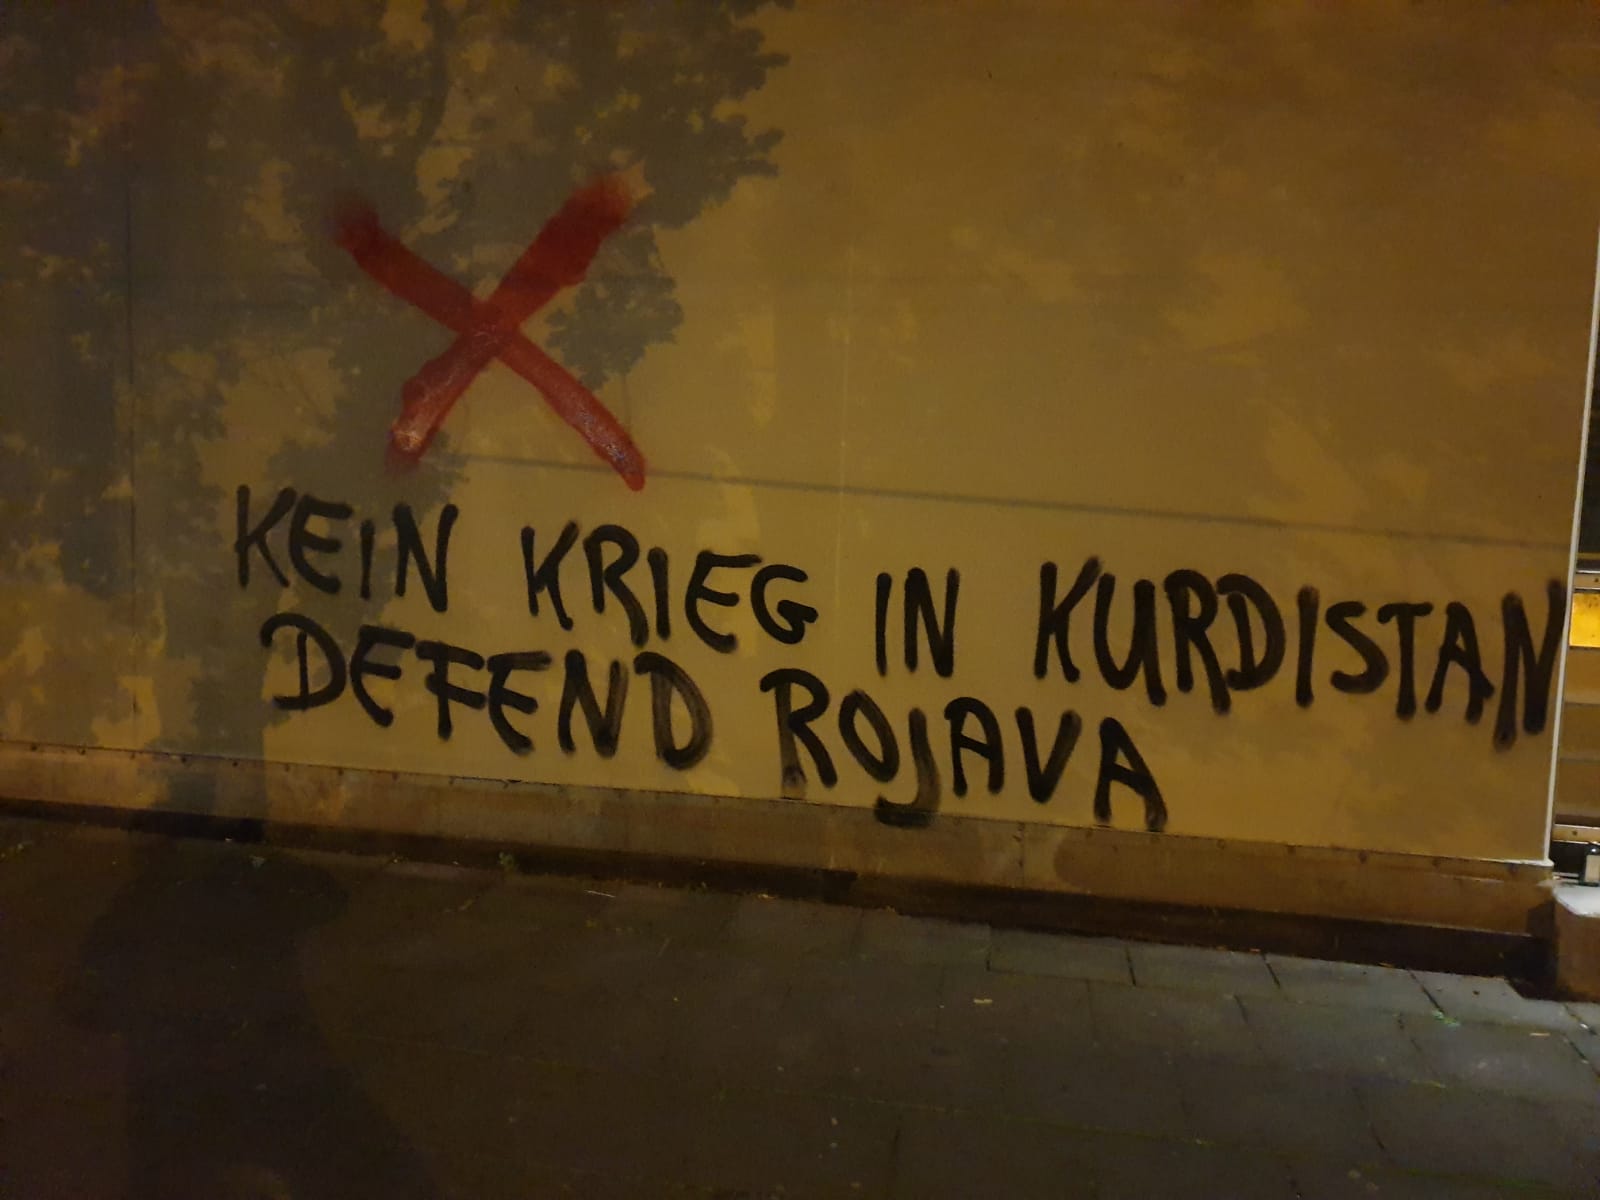 KEIN KRIEG IN KURDISTAN
DEFEND ROJAVA